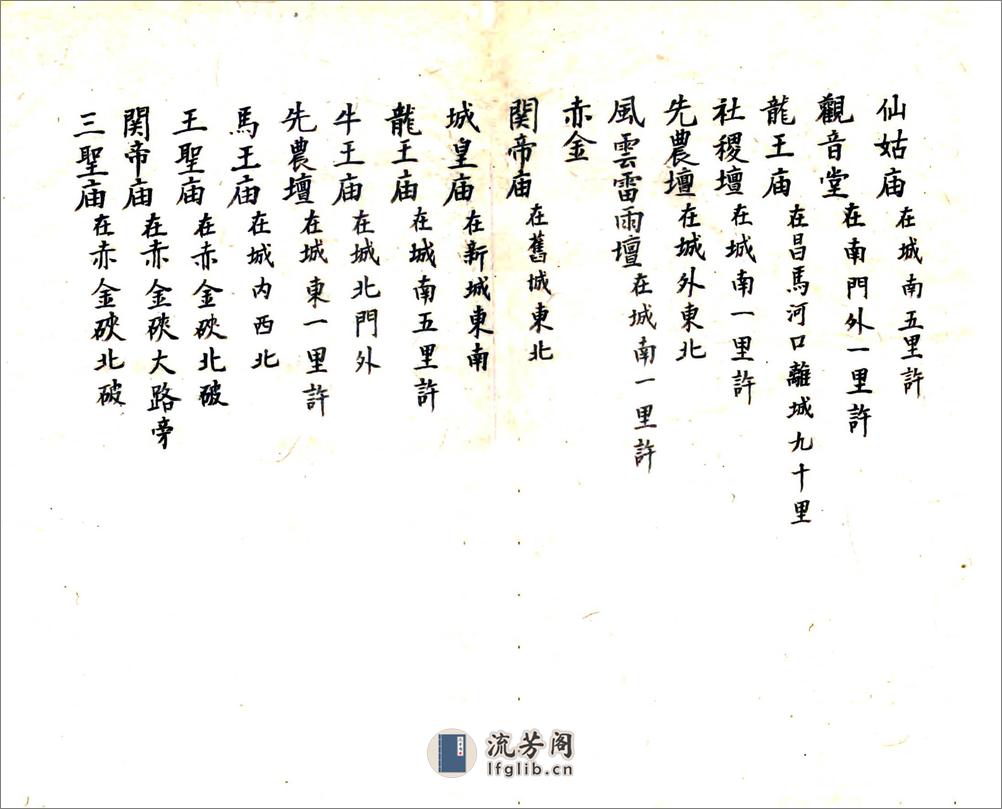 仙姑庙在城南五里許
觀音堂在南門外一里許
龍王庙在昌馬河口離城九十里
社稷壇在城南一里許
先農壇在城外東北
風雲雷雨壇在城南一里許
赤金
関帝庙在舊城東北
城皇庙在新城東南
龍王庙在城南五里許
牛王庙在城北門外
先農壇在城東一里許
馬王庙在城内西北
王聖庙在赤金硤北破
関帝庙在赤金硤大路旁
三聖庙在赤金硤北破
流芳阁
lfglib.cn